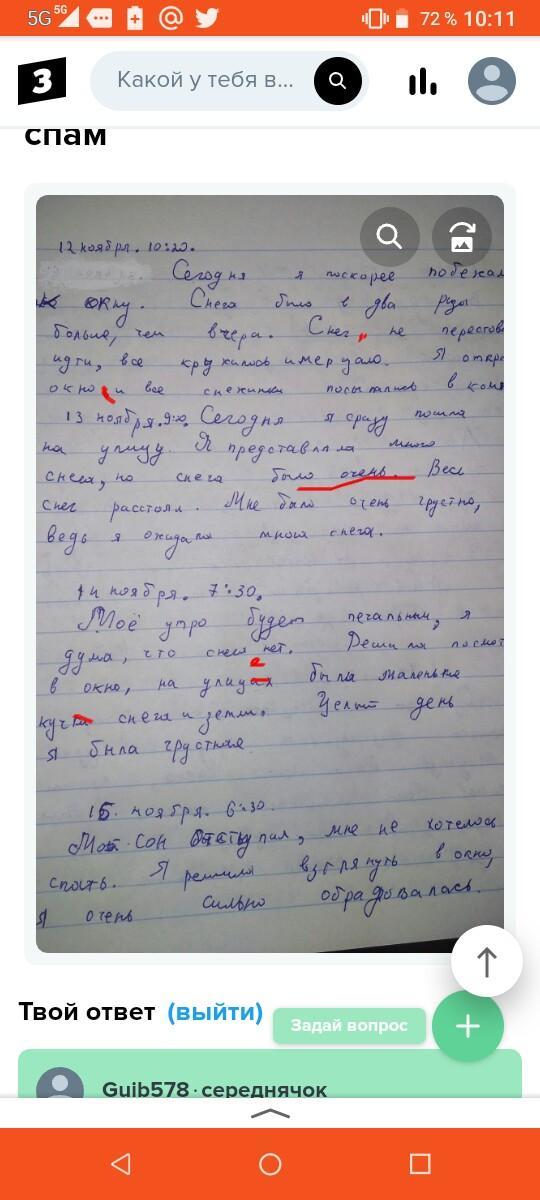 5G 5G 72 % 10:11
З Какой у тебя в...
спам
12 ноября. 10:20.
Сегодня я поскорее побежал
окну. Снега было в два разы
больше, чем вчера. Снег, не перестов
идти, все кружилось и мерцало. Я откр
окно и все снежинки посыпались в
13 ноября. 9:20. Сегодня я сразу пошла
на улицу. Я представляла много
снега, но снега было очень. Весь
снег расстоял. Мне было очень грустно,
ведь я ожидала много снега.
14 ноября. 7:30.
Моё утро будет печальным, я
дума, что снега нет. Решила посмот
в окно, на улице была маленька
кучка снега и земли. Целый день
я была грустная
15. ноября. 6:30.
Мой сон отступил, мне не хотелось
спать. Я решила взглянуть в окно,
я очень сильно обрадовалась.
Твой ответ (выйти)
Задай вопрос
Guib578 · середнячок